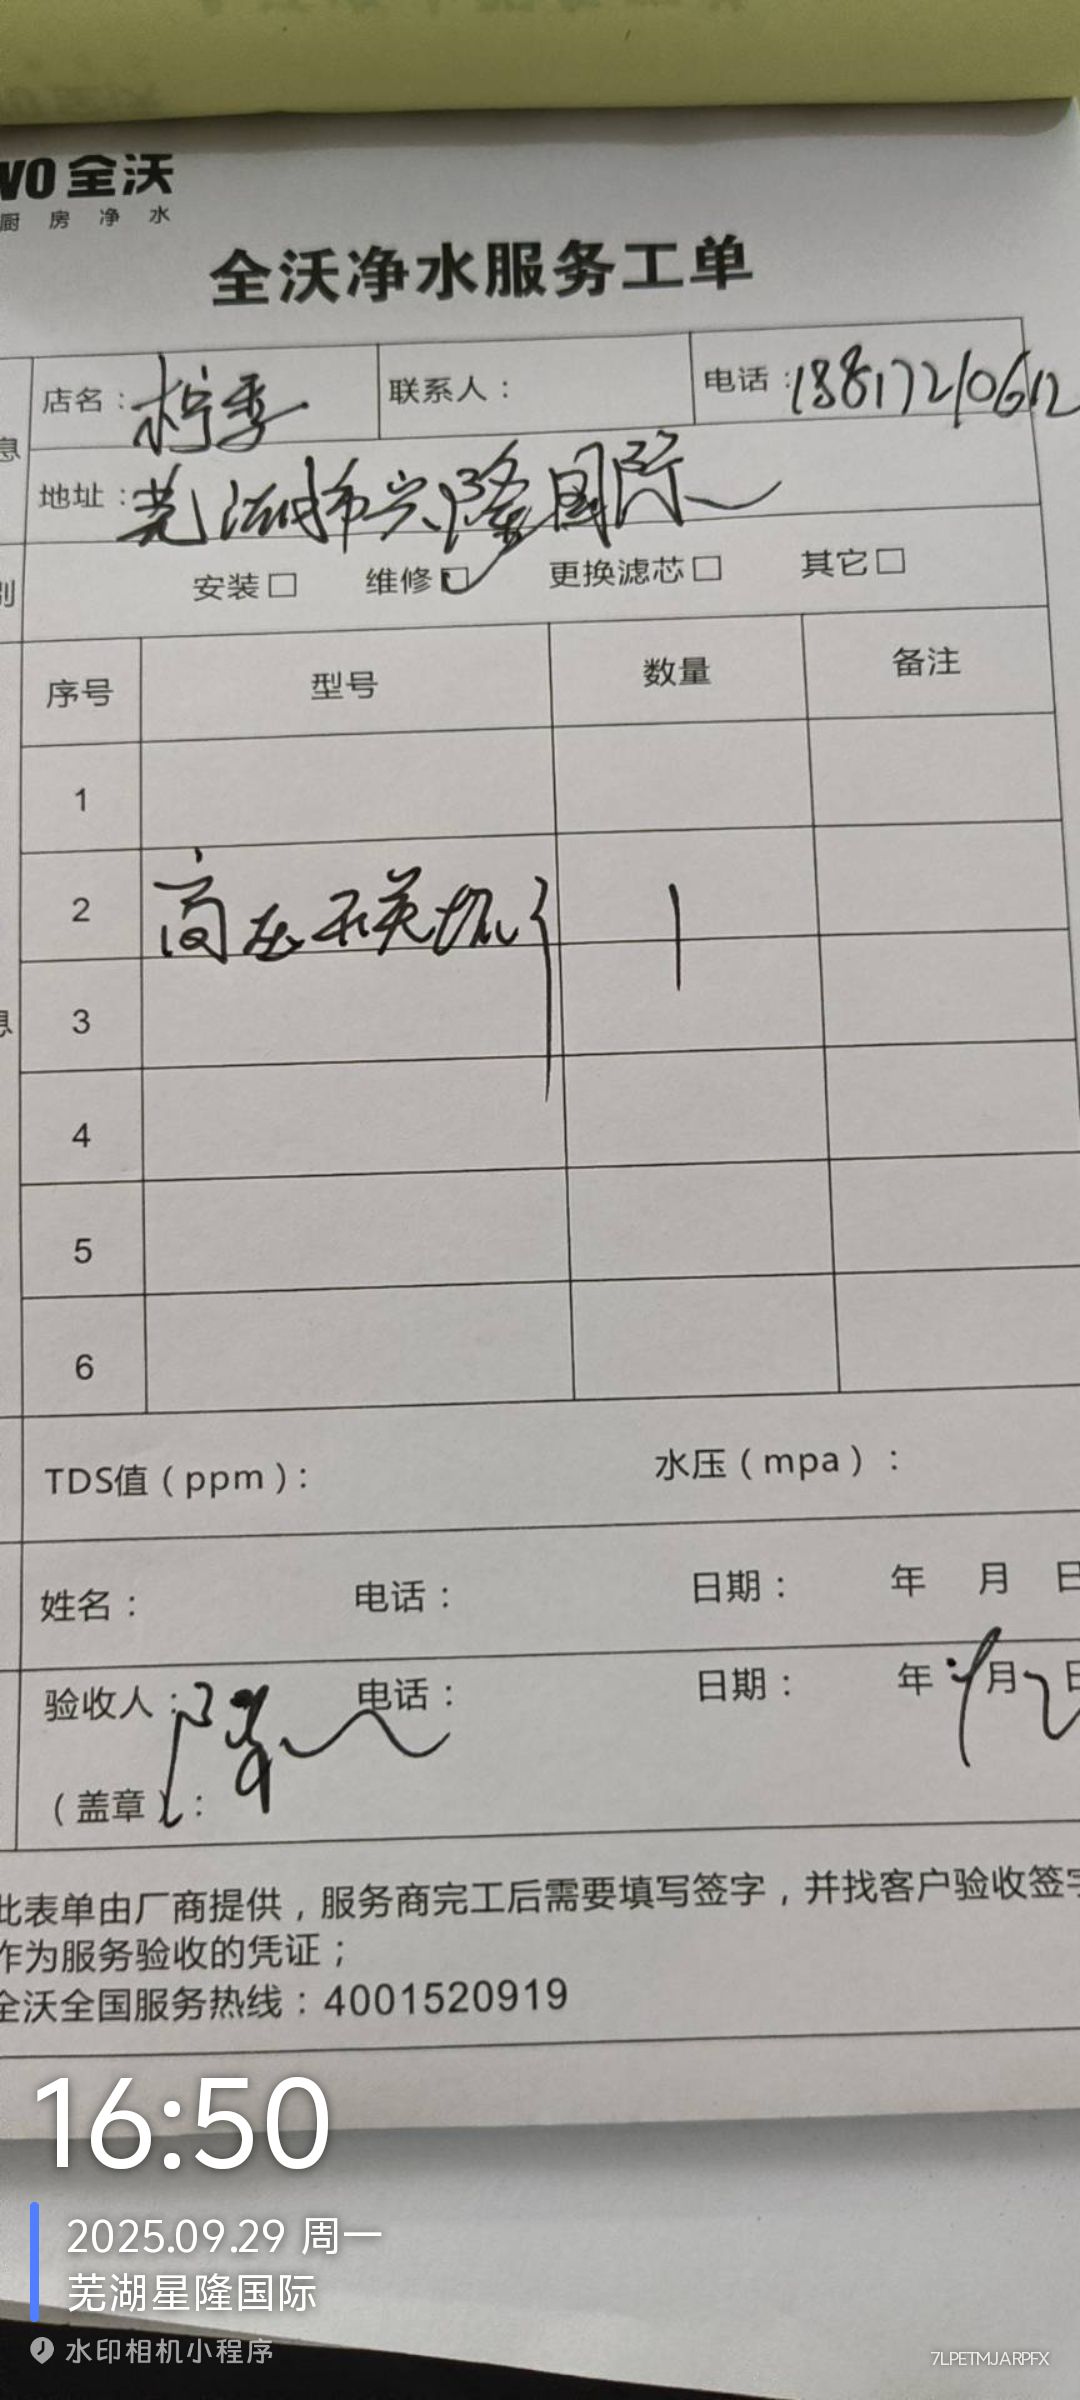 VO 全沃
厨房净水
全沃净水服务工单
店名：柠季 联系人： 电话：18817210612
息
地址：芜湖市兴隆国际
别 安装□ 维修☑ 更换滤芯□ 其它□
序号 型号 数量 备注
1
2 高压开关 1
息 3
4
5
6
TDS值（ppm）： 水压（mpa）：
姓名： 电话： 日期： 年 月 日
验收人： 电话： 日期： 年 9月2 日
（盖章）：
此表单由厂商提供，服务商完工后需要填写签字，并找客户验收签字
作为服务验收的凭证；
全沃全国服务热线：4001520919
16:50
2025.09.29 周一
芜湖星隆国际
水印相机小程序
7LPETMJARPFX